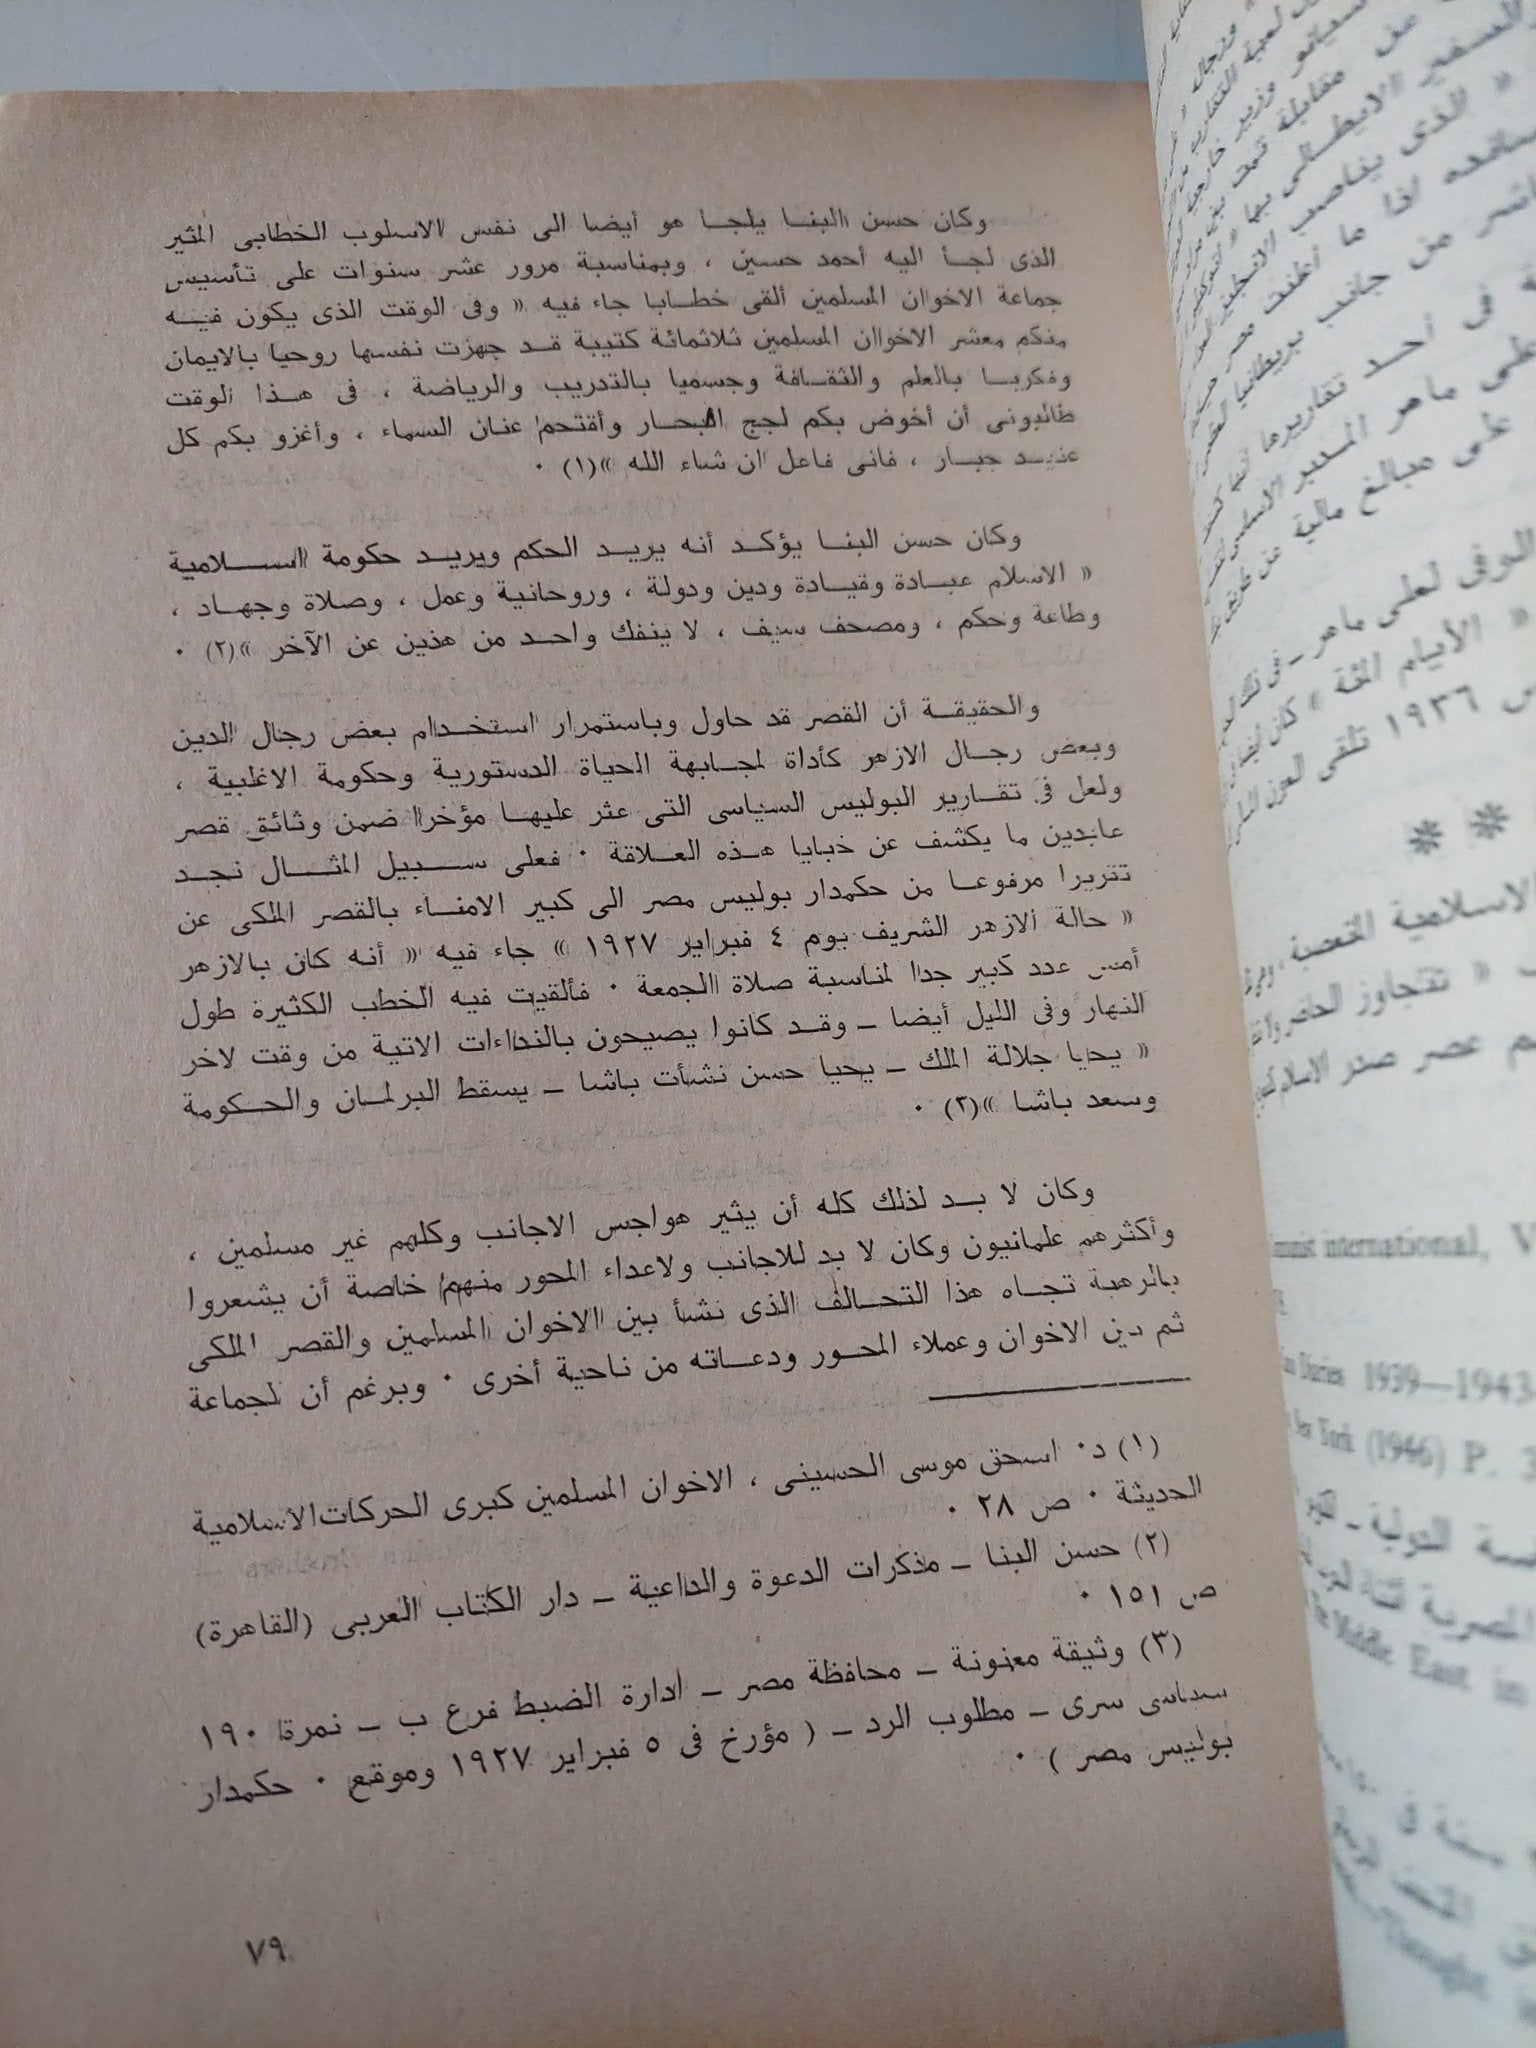 وكان حسن البنا يلجأ هو أيضا الى نفس الاسلوب الخطابى المثير
الذى لجأ اليه أحمد حسين ، وبمناسبة مرور عشر سنوات على تأسيس
جماعة الاخوان المسلمين ألقى خطابا جاء فيه « وفى الوقت الذى يكون فيه
منكم معشر الاخوان المسلمين ثلاثمائة كتيبة قد جهزت نفسها روحيا بالايمان
وفكريا بالعلم والثقافة وجسميا بالتدريب والرياضة ، فى هذا الوقت
طالبونى أن أخوض بكم لجج البحار وأقتحم عنان السماء ، وأغزو بكم كل
عنيد جبار ، فانى فاعل ان شاء الله »(١) ٠
وكان حسن البنا يؤكد أنه يريد الحكم ويريد حكومة اسلامية
« الاسلام عبادة وقيادة ودين ودولة ، وروحانية وعمل ، وصلاة وجهاد ،
وطاعة وحكم ، ومصحف سيف ، لا ينفك واحد من هذين عن الآخر »(٢) ٠
والحقيقة أن القصر قد حاول وباستمرار استخدام بعض رجال الدين
وبعض رجال الازهر كأداة لمجابهة الحياة الدستورية وحكومة الاغلبية ،
ولعل فى تقارير البوليس السياسى التى عثر عليها مؤخرا ضمن وثائق قصر
عابدين ما يكشف عن خبايا هذه العلاقة ٠ فعلى سبيل المثال نجد
تتريرا مرفوعا من حكمدار بوليس مصر الى كبير الامناء بالقصر الملكى عن
« حالة الازهر الشريف يوم ٤ فبراير ١٩٢٧ » جاء فيه « أنه كان بالازهر
أمس عدد كبير جدا لمناسبة صلاة الجمعة ٠ فألقيت فيه الخطب الكثيرة طول
النهار وفى الليل أيضا ــ وقد كانوا يصيحون بالنداءات الاتية من وقت لاخر
« يحيا جلالة الملك ــ يحيا حسن نشأت باشا ــ يسقط البرلمان والحكومة
وسعد باشا »(٣) ٠
وكان لا بد لذلك كله أن يثير هواجس الاجانب وكلهم غير مسلمين ،
وأكثرهم علمانيون وكان لا بد للاجانب ولاعداء المحور منهم خاصة أن يشعروا
بالرهبة تجاه هذا التحالف الذى نشأ بين الاخوان المسلمين والقصر الملكى
ثم بين الاخوان وعملاء المحور ودعاته من ناحية أخرى ٠ وبرغم أن لجماعة
(١) د٠ اسحق موسى الحسينى ، الاخوان المسلمين كبرى الحركات الاسلامية
الحديثة ٠ ص ٢٨ ٠
(٢) حسن البنا ــ مذكرات الدعوة والداعية ــ دار الكتاب العربى (القاهرة)
ص ١٥١ ٠
(٣) وثيقة معنونة ــ محافظة مصر ــ ادارة الضبط فرع ب ــ نمرة ١٩٠
سياسى سرى ــ مطلوب الرد ــ ( مؤرخ فى ٥ فبراير ١٩٢٧ وموقع ٠ حكمدار
بوليس مصر ) ٠
٧٩
والسفير الايطالى
« الذى يناصب
من جانب بريطانيا
فى أحد تقاريرها
على ماهر
على مبالغ مالية عن طريق
لعلى ماهر ــ
« الأيام
١٩٣٦ تلقى
**
الاسلامية المتعصبة
« تتجاوز الحاضر
عصر صدر الاسلام
international, V
Diaries 1939—1943
York (1946) P. 3
الدولية ــ
Middle East in